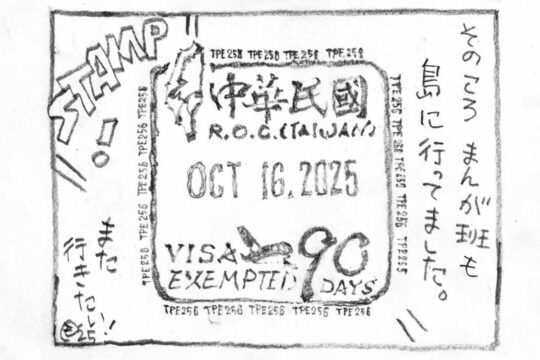 そのころ まんが班も
島に行ってました。
STAMP!
TPE258 TPE258 TPE258 TPE258
中華民國
R.O.C.(TAIWAN)
OCT 16.2025
VISA
EXEMPTED
90
DAYS
TPE256 TPE256 TPE256 TPE256 TPE256
また
行きたい!!
25